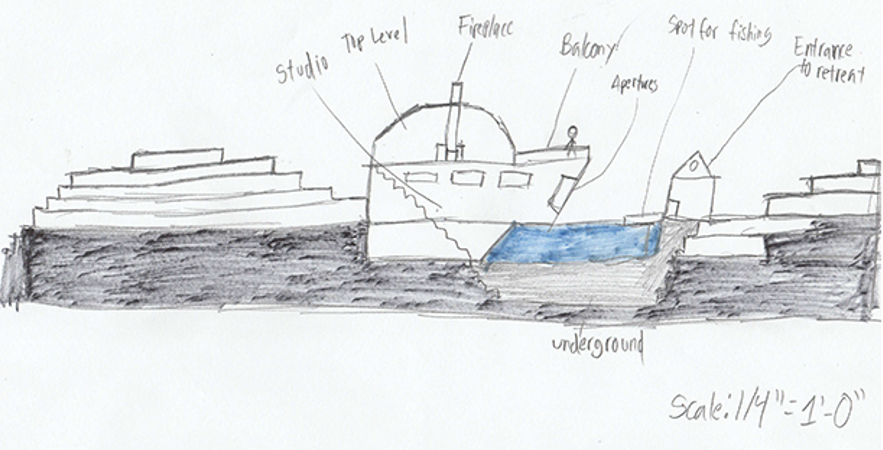 Studio
Top Level
Fireplace
Balcony
Apertures
Spot for fishing
Entrance
to retreat
underground
Scale: 1/4"=1'-0"